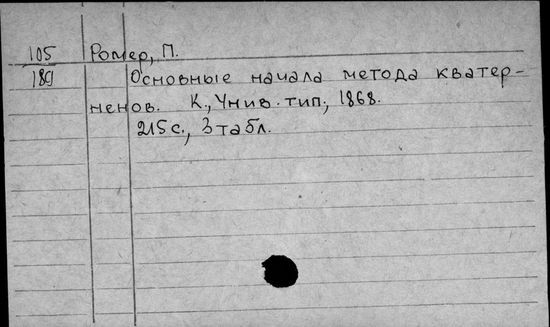 105 Ромер, П.
189 Основные начала метода кватер-
ненов. К., Унив. тип., 1868.
215 с., 3 табл.